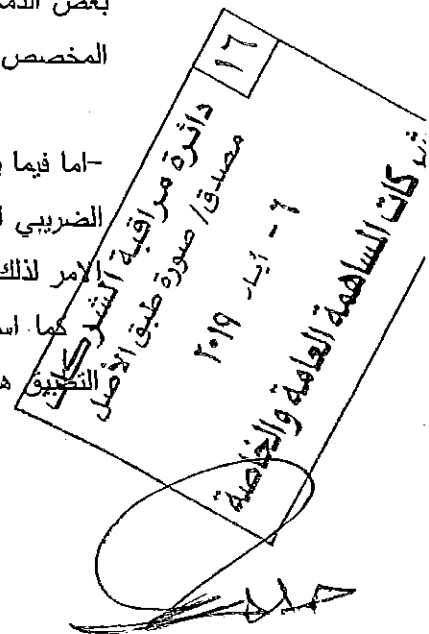 بعض الذم
المخصص
-اما فيما ي
الضريبي ا
الامر لذلك
كما اس
التطبيق ه
١٦
دائرة مراقبة الشركات
مصدق/ صورة طبق الأصل
٦ - أيار ٢٠١٩
شركات المساهمة العامة والخاصة